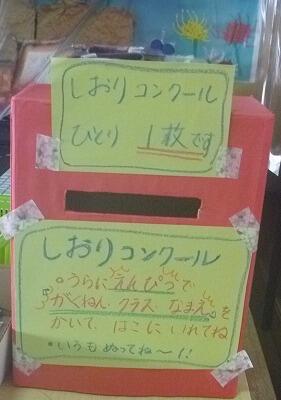 しおりコンクール
ひとり 1枚です
しおりコンクール
。うらに えんぴつで
がくねん・クラス・なまえを
かいて、はこにいれてね
・いろもぬってね〜!